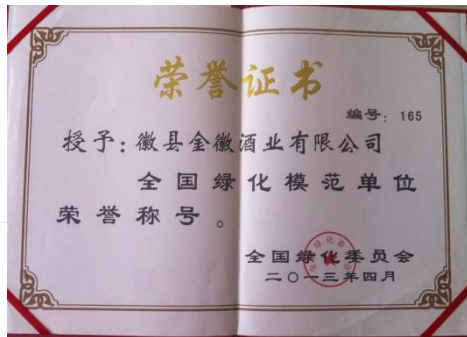 荣誉证书
编号：165
授予：徽县金徽酒业有限公司
全国绿化模范单位
荣誉称号。
全国绿化委员会
二〇一三年四月